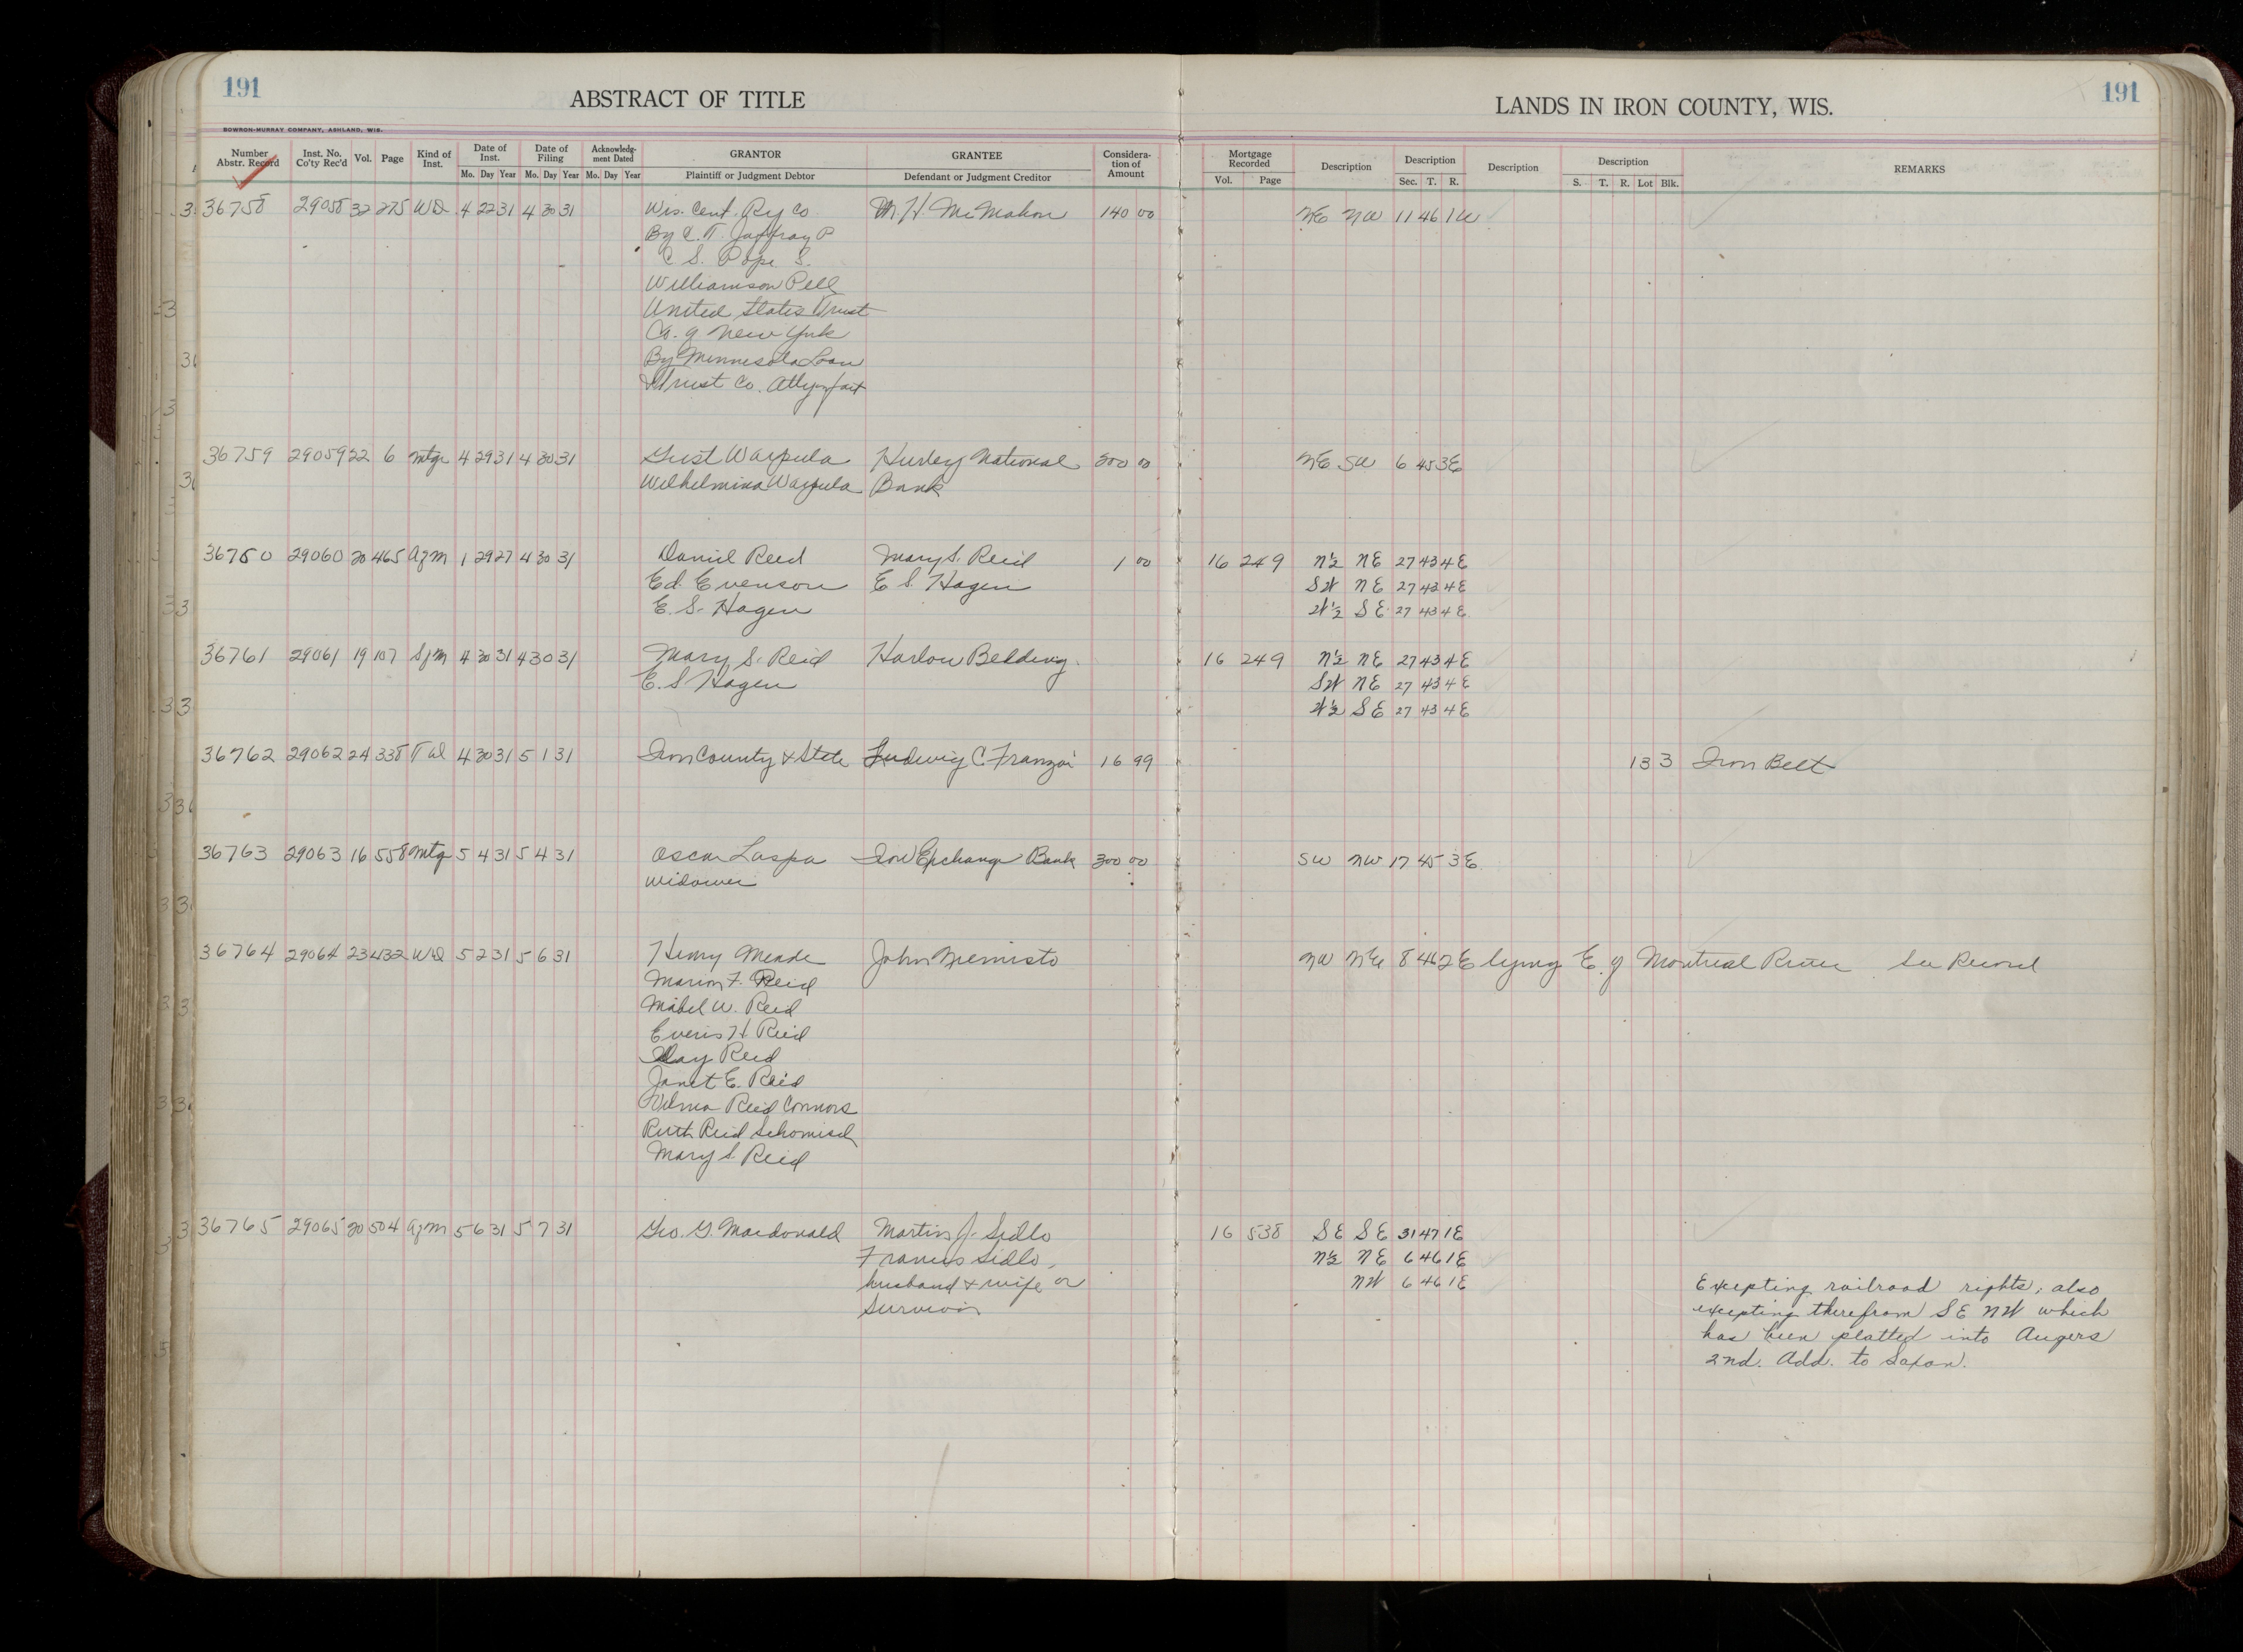 191
ABSTRACT OF TITLE
LANDS IN IRON COUNTY, WIS.
191
BOWRON-MURRAY COMPANY, ASHLAND, WIS.
Number Abstr. Record Inst. No. Co'ty Rec'd Vol. Page Kind of Inst. Date of Inst. Mo. Day Year Date of Filing Mo. Day Year Acknowledg-ment Dated Mo. Day Year GRANTOR Plaintiff or Judgment Debtor GRANTEE Defendant or Judgment Creditor Considera-tion of Amount Mortgage Recorded Vol. Page Description Description Sec. T. R. Description Description S. T. R. Lot Blk. REMARKS
36758 29058 32 275 WD 4 22 31 4 30 31 Wis. Cent. Ry Co M. H. McMahon 140 00 NE NW 11 46 1W
By C. T. Jaffray P
C. S. Pope S.
Williamson Pell
United States Trust
Co. of New York
By Minnesota Loan
& Trust Co. Atty in fact
36759 29059 22 6 Mtge 4 29 31 4 30 31 Gust Warpula Hurley National 300 00 NE SW 6 45 3E
Wilhelmina Warpula Bank
36760 29060 20 465 Agm 1 29 27 4 30 31 Daniel Reid Mary S. Reid 1 00 16 249 N½ NE 27 43 4E
Ed. Evenson E. S. Hagen SW NE 27 43 4E
E. S. Hagen W½ SE 27 43 4E
36761 29061 19 107 Sfm 4 30 31 4 30 31 Mary S. Reid Harlow Belding. 16 249 N½ NE 27 43 4E
E. S Hagen SW NE 27 43 4E
W½ SE 27 43 4E
36762 29062 24 338 T d 4 30 31 5 1 31 Iron County & State Ludwig C. Franzoi 16 99 13 3 Iron Belt
36763 29063 16 558 Mtg 5 4 31 5 4 31 Oscar Laspa Iron Exchange Bank 300 00 SW NW 17 45 3E
widower
36764 29064 23 432 WD 5 2 31 5 6 31 Henry Meade John Niemisto NW NE 8 46 2E lying E. of Montreal River See Record
Marion F. Reid
Mabel W. Reid
Everis H Reid
Day Reid
Janet E. Reid
Wilma Reid Connors
Ruth Reid Schomisch
Mary S. Reid
36765 29065 20 504 Agm 5 6 31 5 7 31 Geo. G. Macdonald Martin J. Sidlo 16 538 SE SE 31 47 1E
Frances Sidlo, N½ NE 6 46 1E
husband & wife or NW 6 46 1E Excepting railroad rights; also
Survivor excepting therefrom SE NW which
has been platted into Augers
2nd. Add. to Saxon.